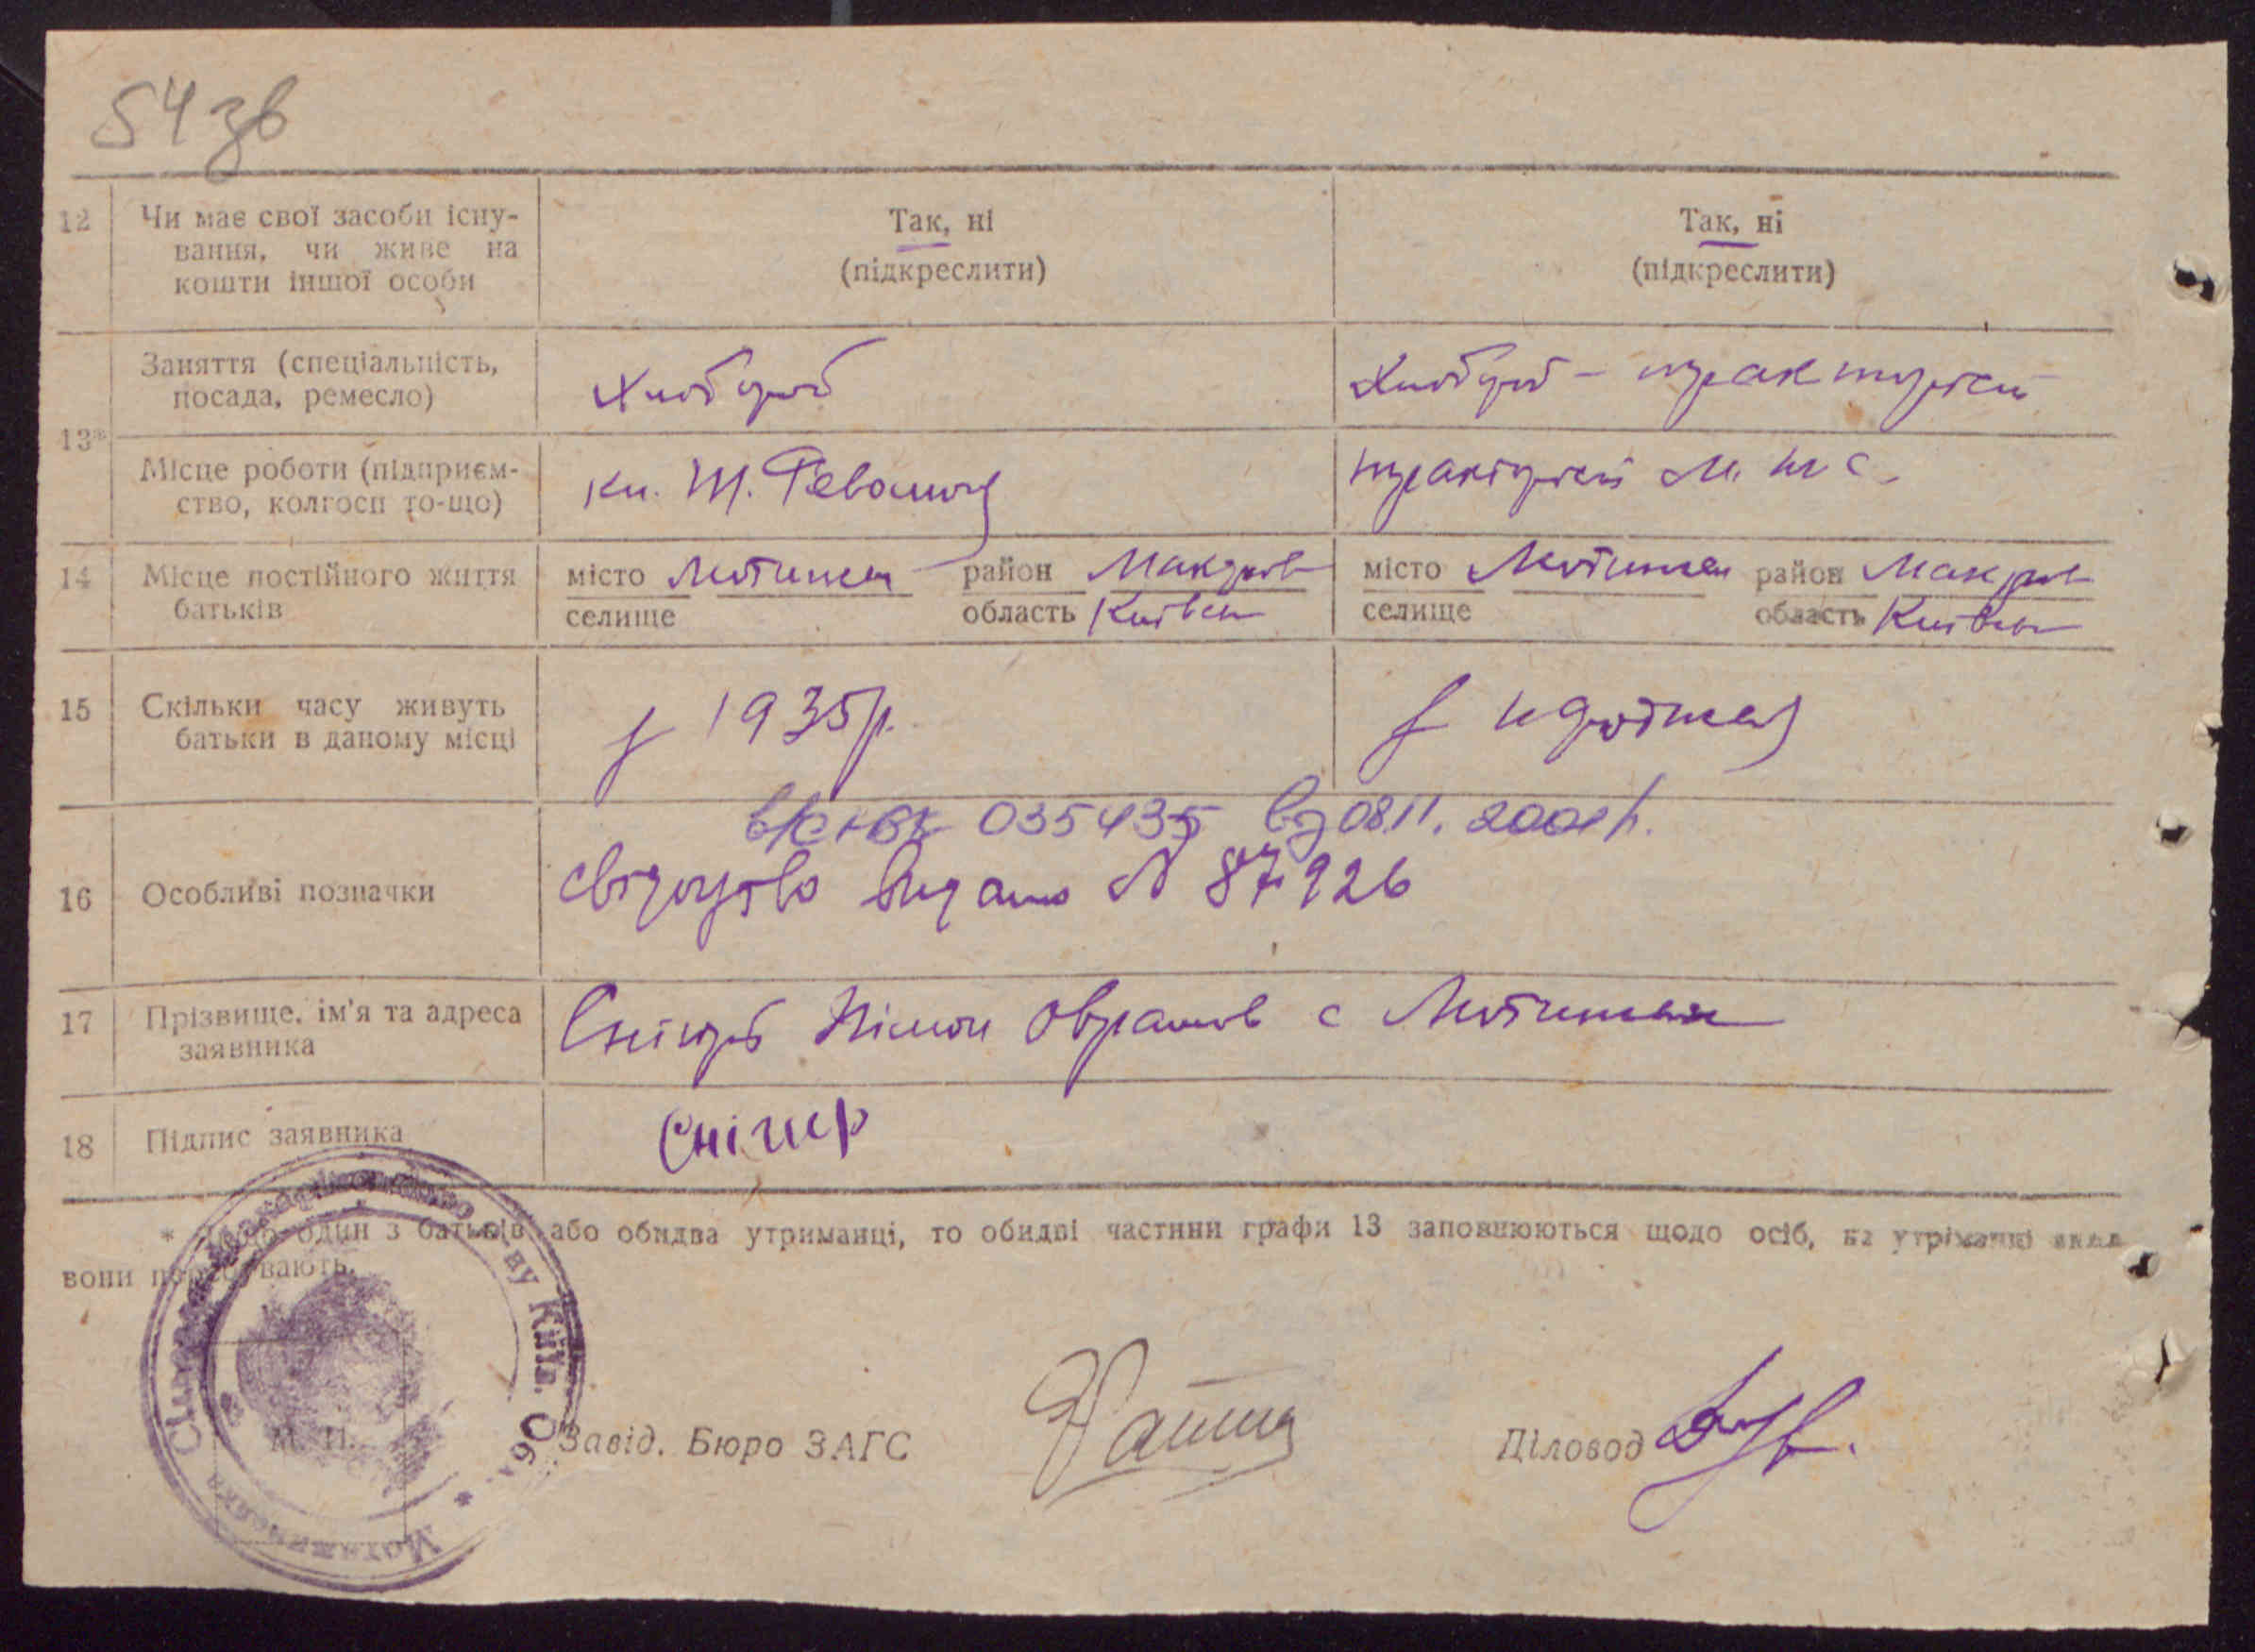 54 зв
12 Чи має свої засоби існу-
вання, чи живе на
кошти іншої особи
Так, ні
(підкреслити)
Так, ні
(підкреслити)
13*
Заняття (спеціальність,
посада, ремесло)
Хлібороб
Хлібороб - тракторист
Місце роботи (підприєм-
ство, колгосп то-що)
тракторист М. Т. С.
14 Місце постійного життя
батьків
місто Мотижин район Макарів
селище область Київська
місто Мотижин район Макарів
селище область Київська
15 Скільки часу живуть
батьки в даному місці
з 1935 р.
з народження
16 Особливі позначки
035435 від 08.11. 2001 р.
свідоцтво видано № 87926
17 Прізвище, ім'я та адреса
заявника
Снігир Оврамов с Мотижин
18 Підпис заявника
Снігир
* один з батьків або обидва утриманці, то обидві частини графи 13 заповнюються щодо осіб, на утриманні яких
вони перебувають.
М. П.
Завід. Бюро ЗАГС
Діловод
Київ. Обл.